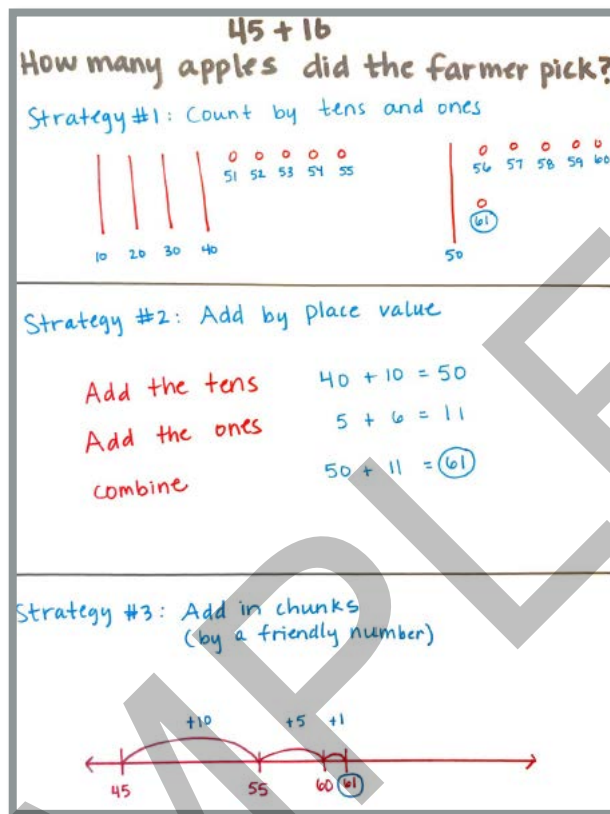 45 + 16
How many apples did the farmer pick?
Strategy #1: Count by tens and ones
51 52 53 54 55
56 57 58 59 60
61
10 20 30 40
50
Strategy #2: Add by place value
Add the tens 40 + 10 = 50
Add the ones 5 + 6 = 11
combine 50 + 11 = 61
Strategy #3: Add in chunks
(by a friendly number)
+10 +5 +1
45 55 60 61
MPLE